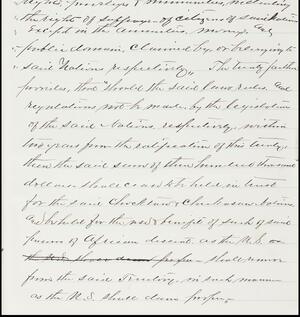 rights, privileges & immunities, including
the right of suffrage of citizens of said Nations
Except in the annuities, moneys, and
public domain, claimed by or belonging to
said Nations respectively". The treaty further
provides, that "should the said laws, rules, and
regulations, not be made, by the legislatures
of the said Nations, respectively, within
two years from the ratification of this treaty,
then the said sum of three hundred thousand
dollars shall cease to be held in trust
for the said Choctaw & Chickasaw Nations
and be held for the use & benefit of such of said
persons of African descent, as the U.S.
shall remove
from the said Territory, in such manner
as the U.S. shall deem proper,